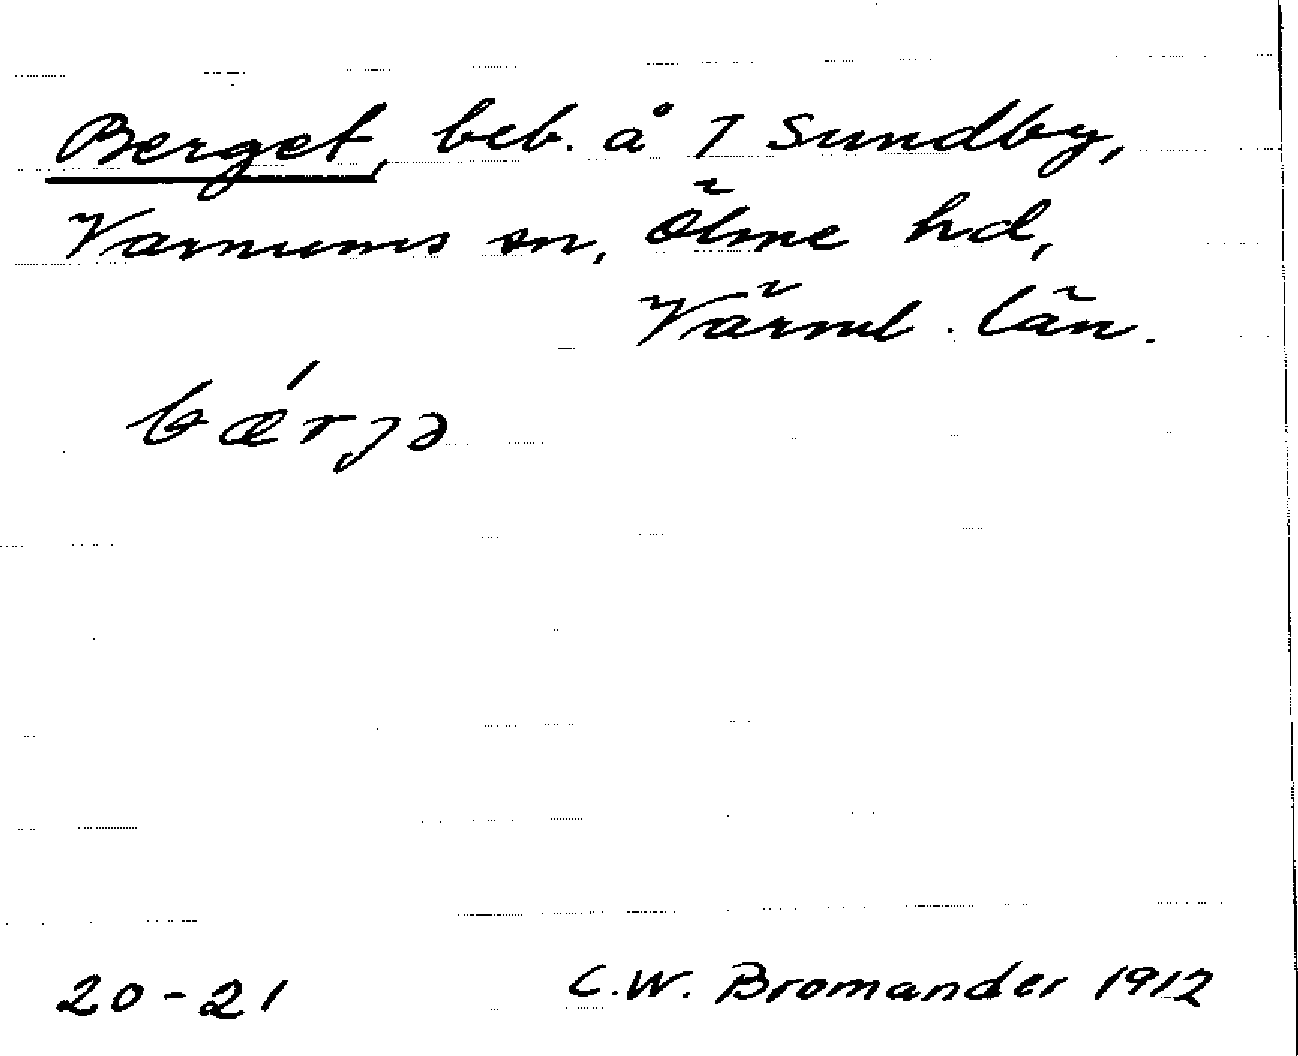 Berget, beb. å 7 Sundby,
Varnums sn, Ölme hd,
Värml. län.
bǽrjə
20-21 C.W. Bromander 1912